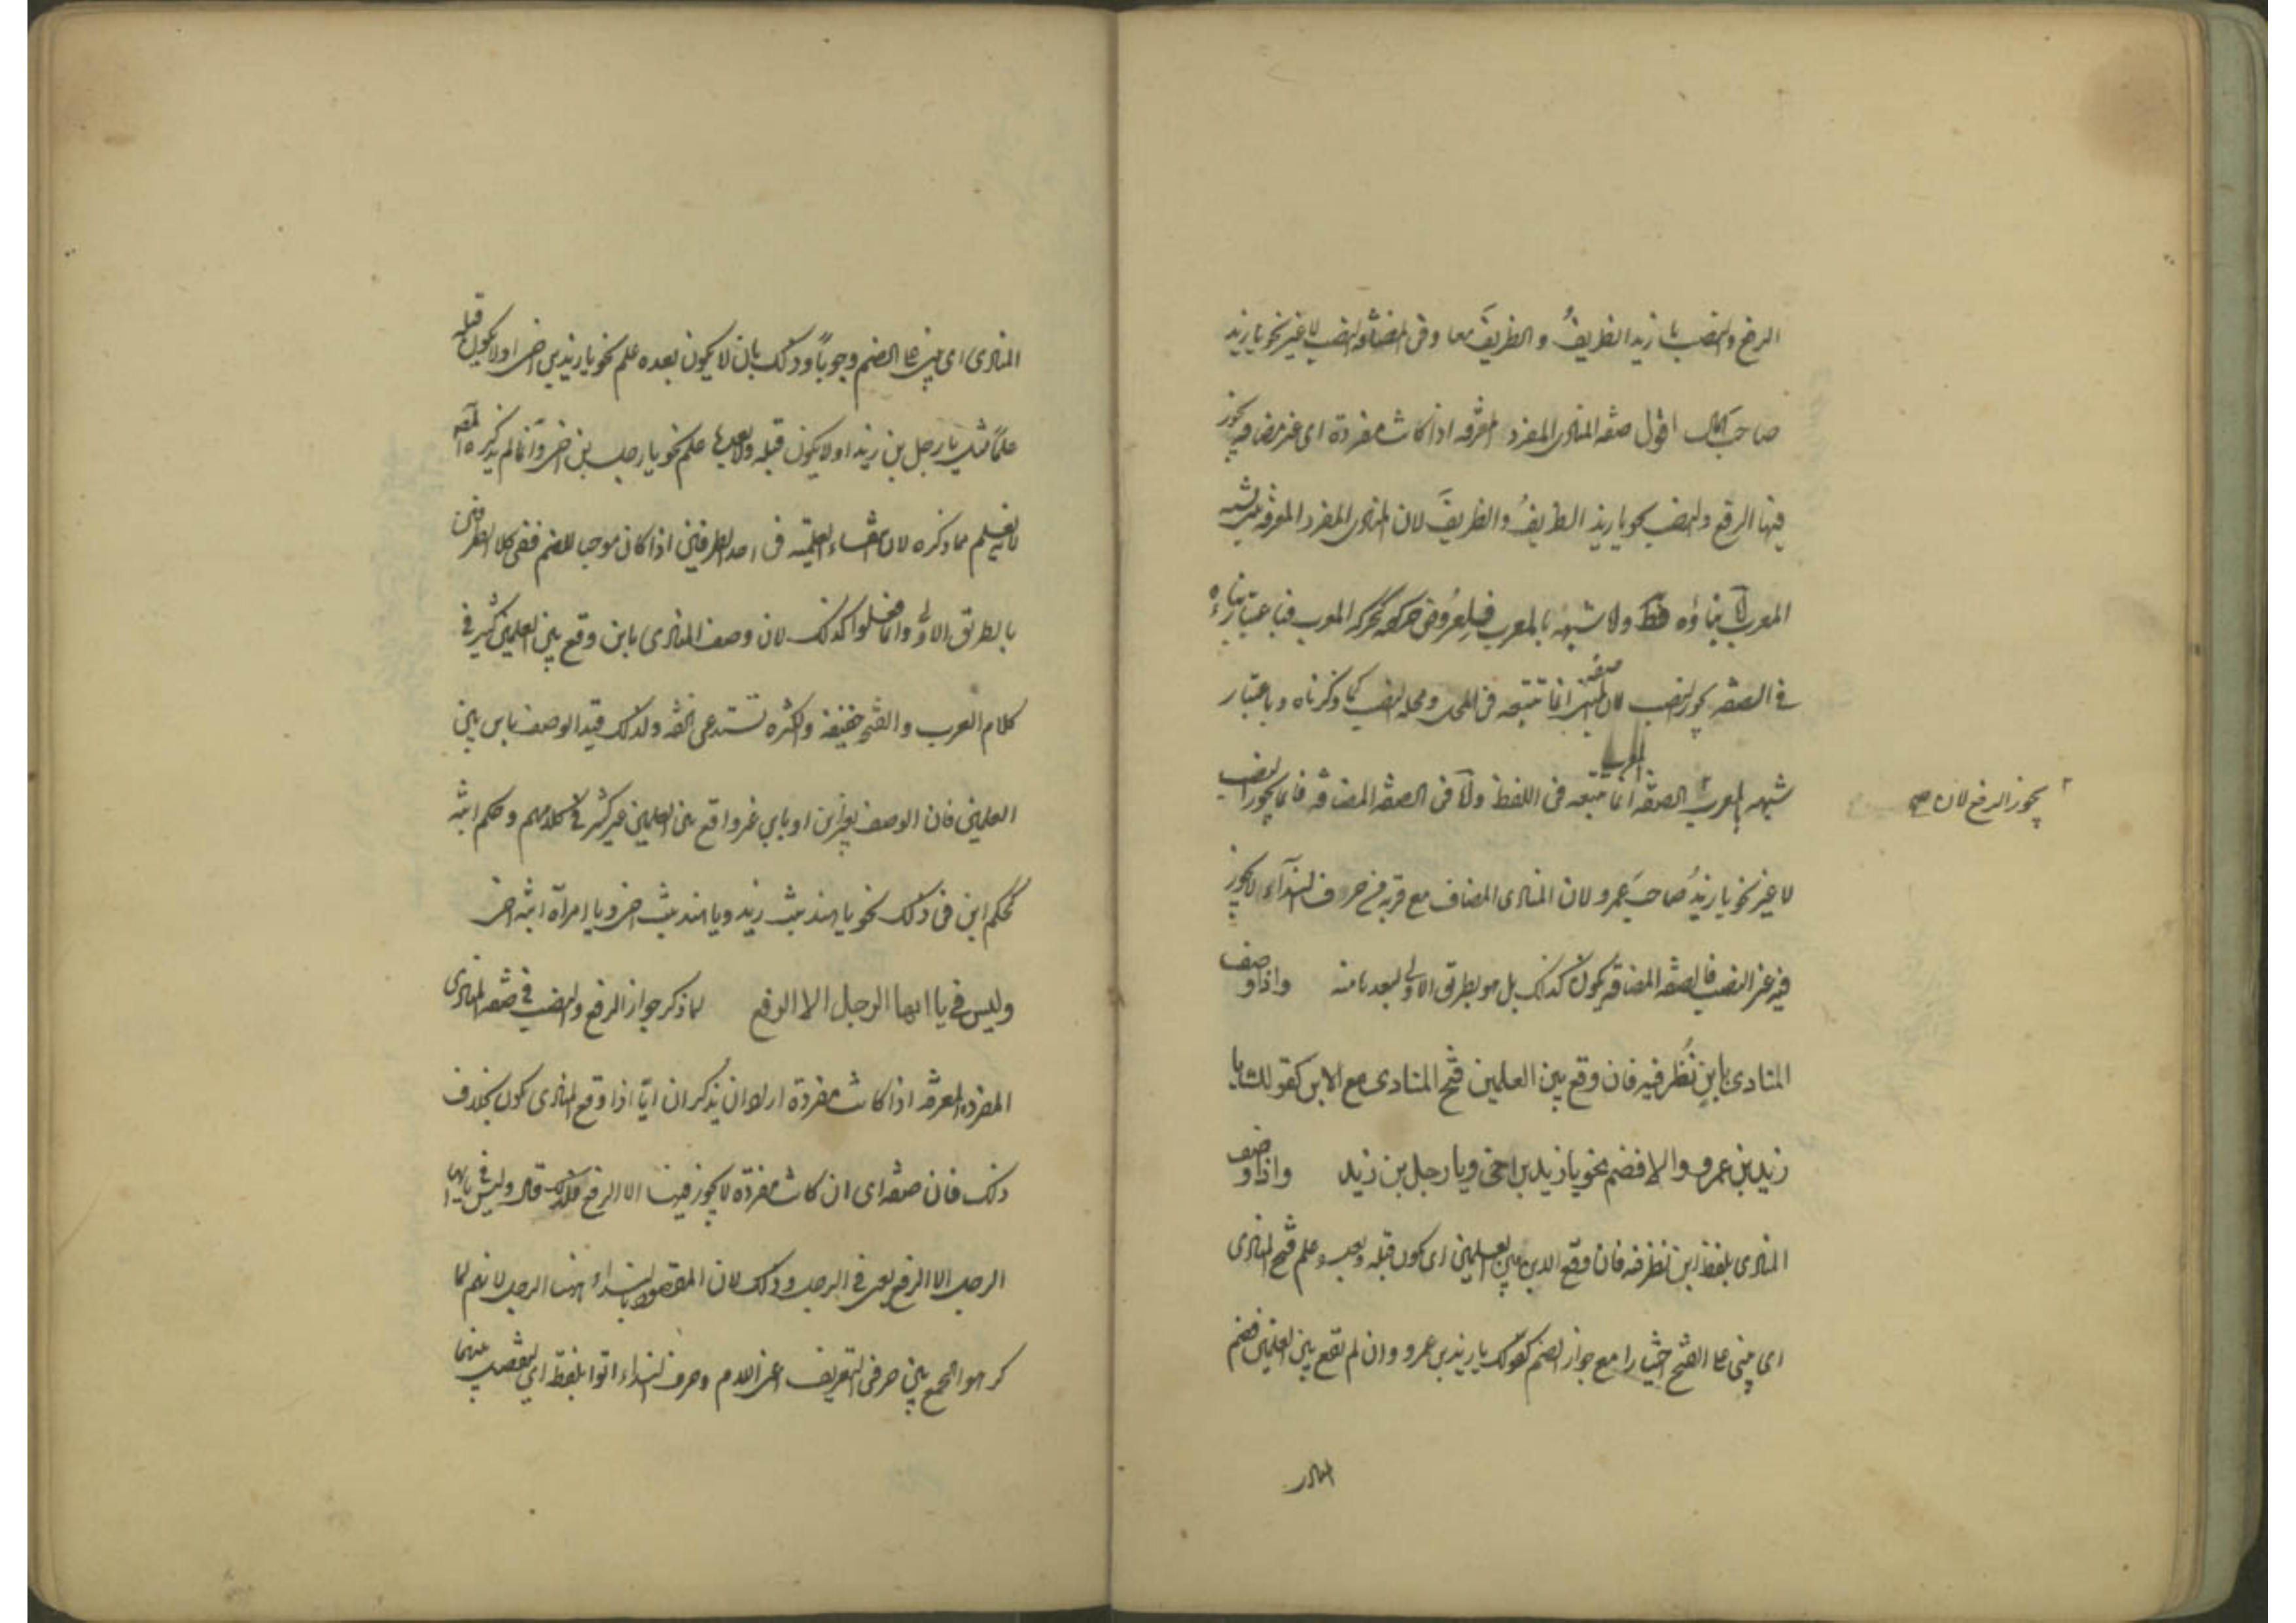 الرفع والنصب يا زيد الظريفُ والظريفَ معا وفى المضافة النصب لا غير نحو يا زيد
صاحب المال اقول صفة المنادى المفرد المعرفة اذا كانت مفردة اى غير مضافة يجوز
فيها الرفع والنصب نحو يا زيد الظريفُ والظريفَ لان المنادى المفرد المعرفة مبنى يشبه
المعرب اما بناؤه فقط ولا شبهه بالمعرب فلعروض حركته كحركة المعرب فباعتبار بناءه
فى الصفة يجوز النصب لان صفة المبنى انما تتبعه فى المحل ومحله النصب كما ذكرناه وباعتبار
شبهه بالمعرب الصفة المعرب انما تتبعه فى اللفظ واما فى الصفة المضافة فانما يجوز النصب
يجوز الرفع لان صح
لا غير نحو يا زيدُ صاحبَ عمرو لان المنادى المضاف مع قربه من حرف النداء لا يجوز
فيه غير النصب فالصفة المضافة يكون كذلك بل هو بطريق الاولى لبعدها منه واذا وصف
المنادى بابن نُظر فيه فان وقع بين العلمين فتح المنادى مع الابن كقولك يا
زيد بن عمرو والا فضم نحو يا زيد بن اخى ويا رجل بن زيد واذا وصف
المنادى بلفظ ابن نظر فيه فان وقع الابن بين العلمين اى يكون قبله وبعده علم فتح المنادى
اى يبنى على الفتح اختيارا مع جواز الضم كقولك يا زيد بن عمرو وان لم تقع بين العلمين فضم
المنادى
المنادى اى يبنى على الضم وجوباً وذلك بان لا يكون بعده علم نحو يا زيد بن اخى او لا يكون قبله
علماً مثل يا رجل بن زيد او لا يكون قبله ولا بعدها علم نحو يا رجل بن اخى وانما لم يذكره المصنف
لانه يعلم مما ذكره لان انتفاء العلمية فى احد الطرفين اذا كان موجبا للضم ففى كلا الطرفين
بالطريق الاولى وانما فعلوا كذلك لان وصف المنادى بابن وقع بين العلمين كثير فى
كلام العرب والفتح خفيفة والكثرة تستدعى الخفة ولذلك قيد الوصف بابن بين
العلمين فان الوصف بغير ابن او بابن غير واقع بين العلمين غير كثير فى كلامهم وحكم ابنة
كحكم ابن فى ذلك نحو يا هند بنت زيد ويا هند بنت اخى ويا امرأة ابنة اخى
وليس فى يا ايها الرجل الا الرفع لما ذكر جواز الرفع والنصب فى صفة المنادى
المفرد المعرفة اذا كانت مفردة اراد ان يذكر ان ايّا اذا وقع المنادى يكون بخلاف
ذلك فان صفة اى ان كانت مفردة لا يجوز فيها الا الرفع فلذلك قال وليس فى يا ايها
الرجل الا الرفع يعنى فى الرجل وذلك لان المقصود بالنداء ههنا الرجل لانهم لما
كرهوا الجمع بين حرفى التعريف اعنى اللام وحرف النداء اتوا بلفظ اى ليفصل بينهما